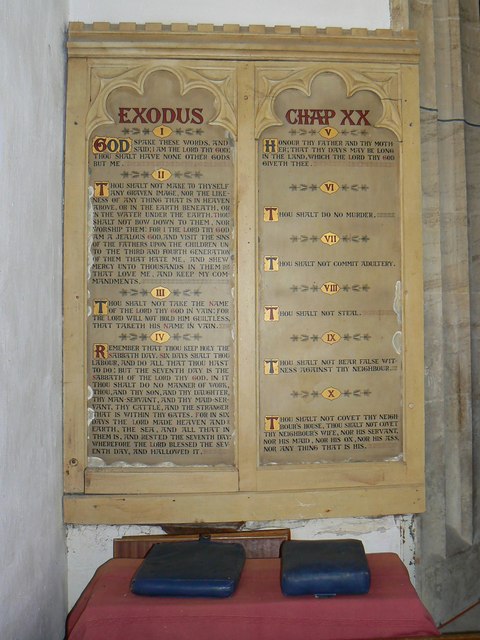 EXODUS
I
GOD SPAKE THESE WORDS, AND
SAID; I AM THE LORD THY GOD:
THOU SHALT HAVE NONE OTHER GODS
BUT ME.
II
THOU SHALT NOT MAKE TO THYSELF
ANY GRAVEN IMAGE, NOR THE LIKE-
NESS OF ANY THING THAT IS IN HEAVEN
ABOVE, OR IN THE EARTH BENEATH, OR
IN THE WATER UNDER THE EARTH. THOU
SHALT NOT BOW DOWN TO THEM, NOR
WORSHIP THEM. FOR I THE LORD THY GOD
AM A JEALOUS GOD, AND VISIT THE SINS
OF THE FATHERS UPON THE CHILDREN UN
TO THE THIRD AND FOURTH GENERATION
OF THEM THAT HATE ME, AND SHEW
MERCY UNTO THOUSANDS IN THEM
THAT LOVE ME, AND KEEP MY COM
MANDMENTS.
III
THOU SHALT NOT TAKE THE NAME
OF THE LORD THY GOD IN VAIN: FOR
THE LORD WILL NOT HOLD HIM GUILTLESS,
THAT TAKETH HIS NAME IN VAIN.
IV
REMEMBER THAT THOU KEEP HOLY THE
SABBATH DAY. SIX DAYS SHALT THOU
LABOUR, AND DO ALL THAT THOU HAST
TO DO: BUT THE SEVENTH DAY IS THE
SABBATH OF THE LORD THY GOD. IN IT
THOU SHALT DO NO MANNER OF WORK,
THOU, AND THY SON, AND THY DAUGHTER,
THY MAN-SERVANT, AND THY MAID-SER-
VANT, THY CATTLE, AND THE STRANGER
THAT IS WITHIN THY GATES. FOR IN SIX
DAYS THE LORD MADE HEAVEN AND
EARTH, THE SEA, AND ALL THAT IN
THEM IS, AND RESTED THE SEVENTH DAY:
WHEREFORE THE LORD BLESSED THE SEV-
ENTH DAY, AND HALLOWED IT.
CHAP XX
V
HONOUR THY FATHER AND THY MOTH
ER; THAT THY DAYS MAY BE LONG
IN THE LAND, WHICH THE LORD THY GOD
GIVETH THEE.
VI
THOU SHALT DO NO MURDER.
VII
THOU SHALT NOT COMMIT ADULTERY.
VIII
THOU SHALT NOT STEAL.
IX
THOU SHALT NOT BEAR FALSE WIT-
NESS AGAINST THY NEIGHBOUR.
X
THOU SHALT NOT COVET THY NEIGH
BOUR'S HOUSE, THOU SHALT NOT COVET
THY NEIGHBOUR'S WIFE, NOR HIS SERVANT,
NOR HIS MAID, NOR HIS OX, NOR HIS ASS,
NOR ANY THING THAT IS HIS.